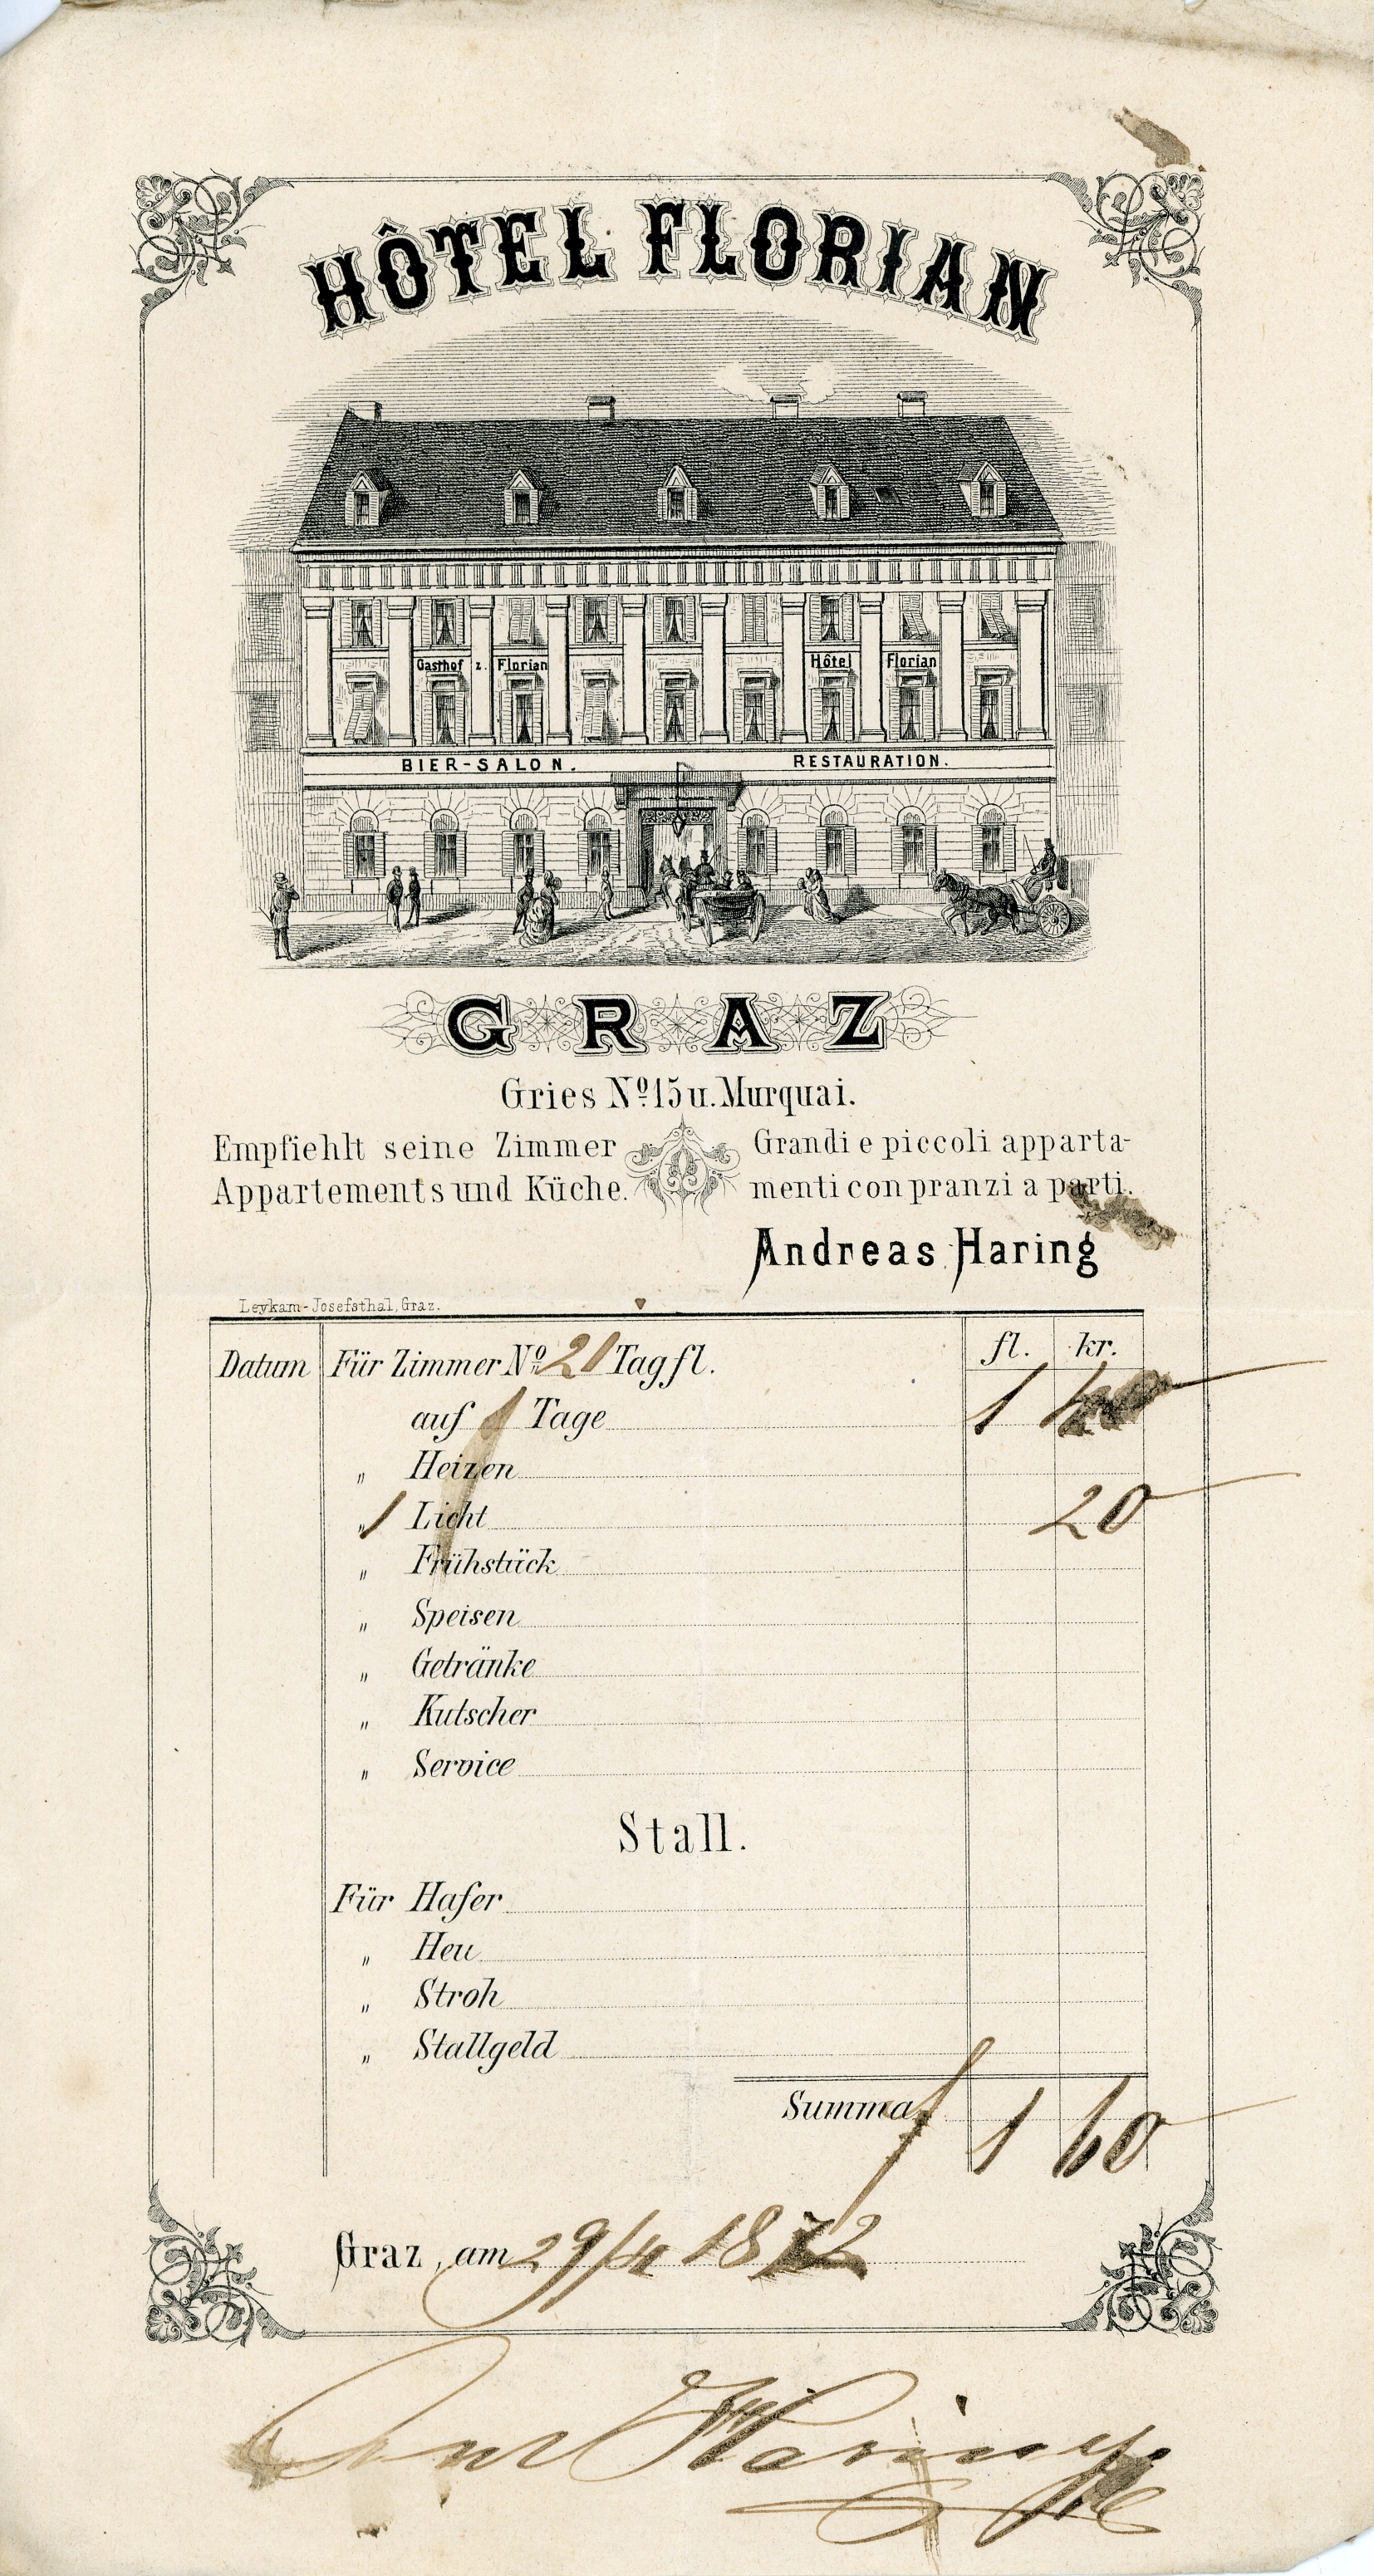 HÔTEL FLORIAN
Gasthof z. Florian Hôtel Florian
BIER-SALON. RESTAURATION.
GRAZ
Gries Nº 15 u. Murquai.
Empfiehlt seine Zimmer
Appartements und Küche.
Grandi e piccoli apparta-
menti con pranzi a parti.
Andreas Haring
Leykam-Josefsthal, Graz.
Datum Für Zimmer Nº 21 Tag fl. fl. kr.
auf 1 Tage 1 40
" Heizen
" 1 Licht 20
" Frühstück
" Speisen
" Getränke
" Kutscher
" Service
Stall.
Für Hafer
" Heu
" Stroh
" Stallgeld
Summa f 1 60
Graz, am 29/4 1872
And Haring